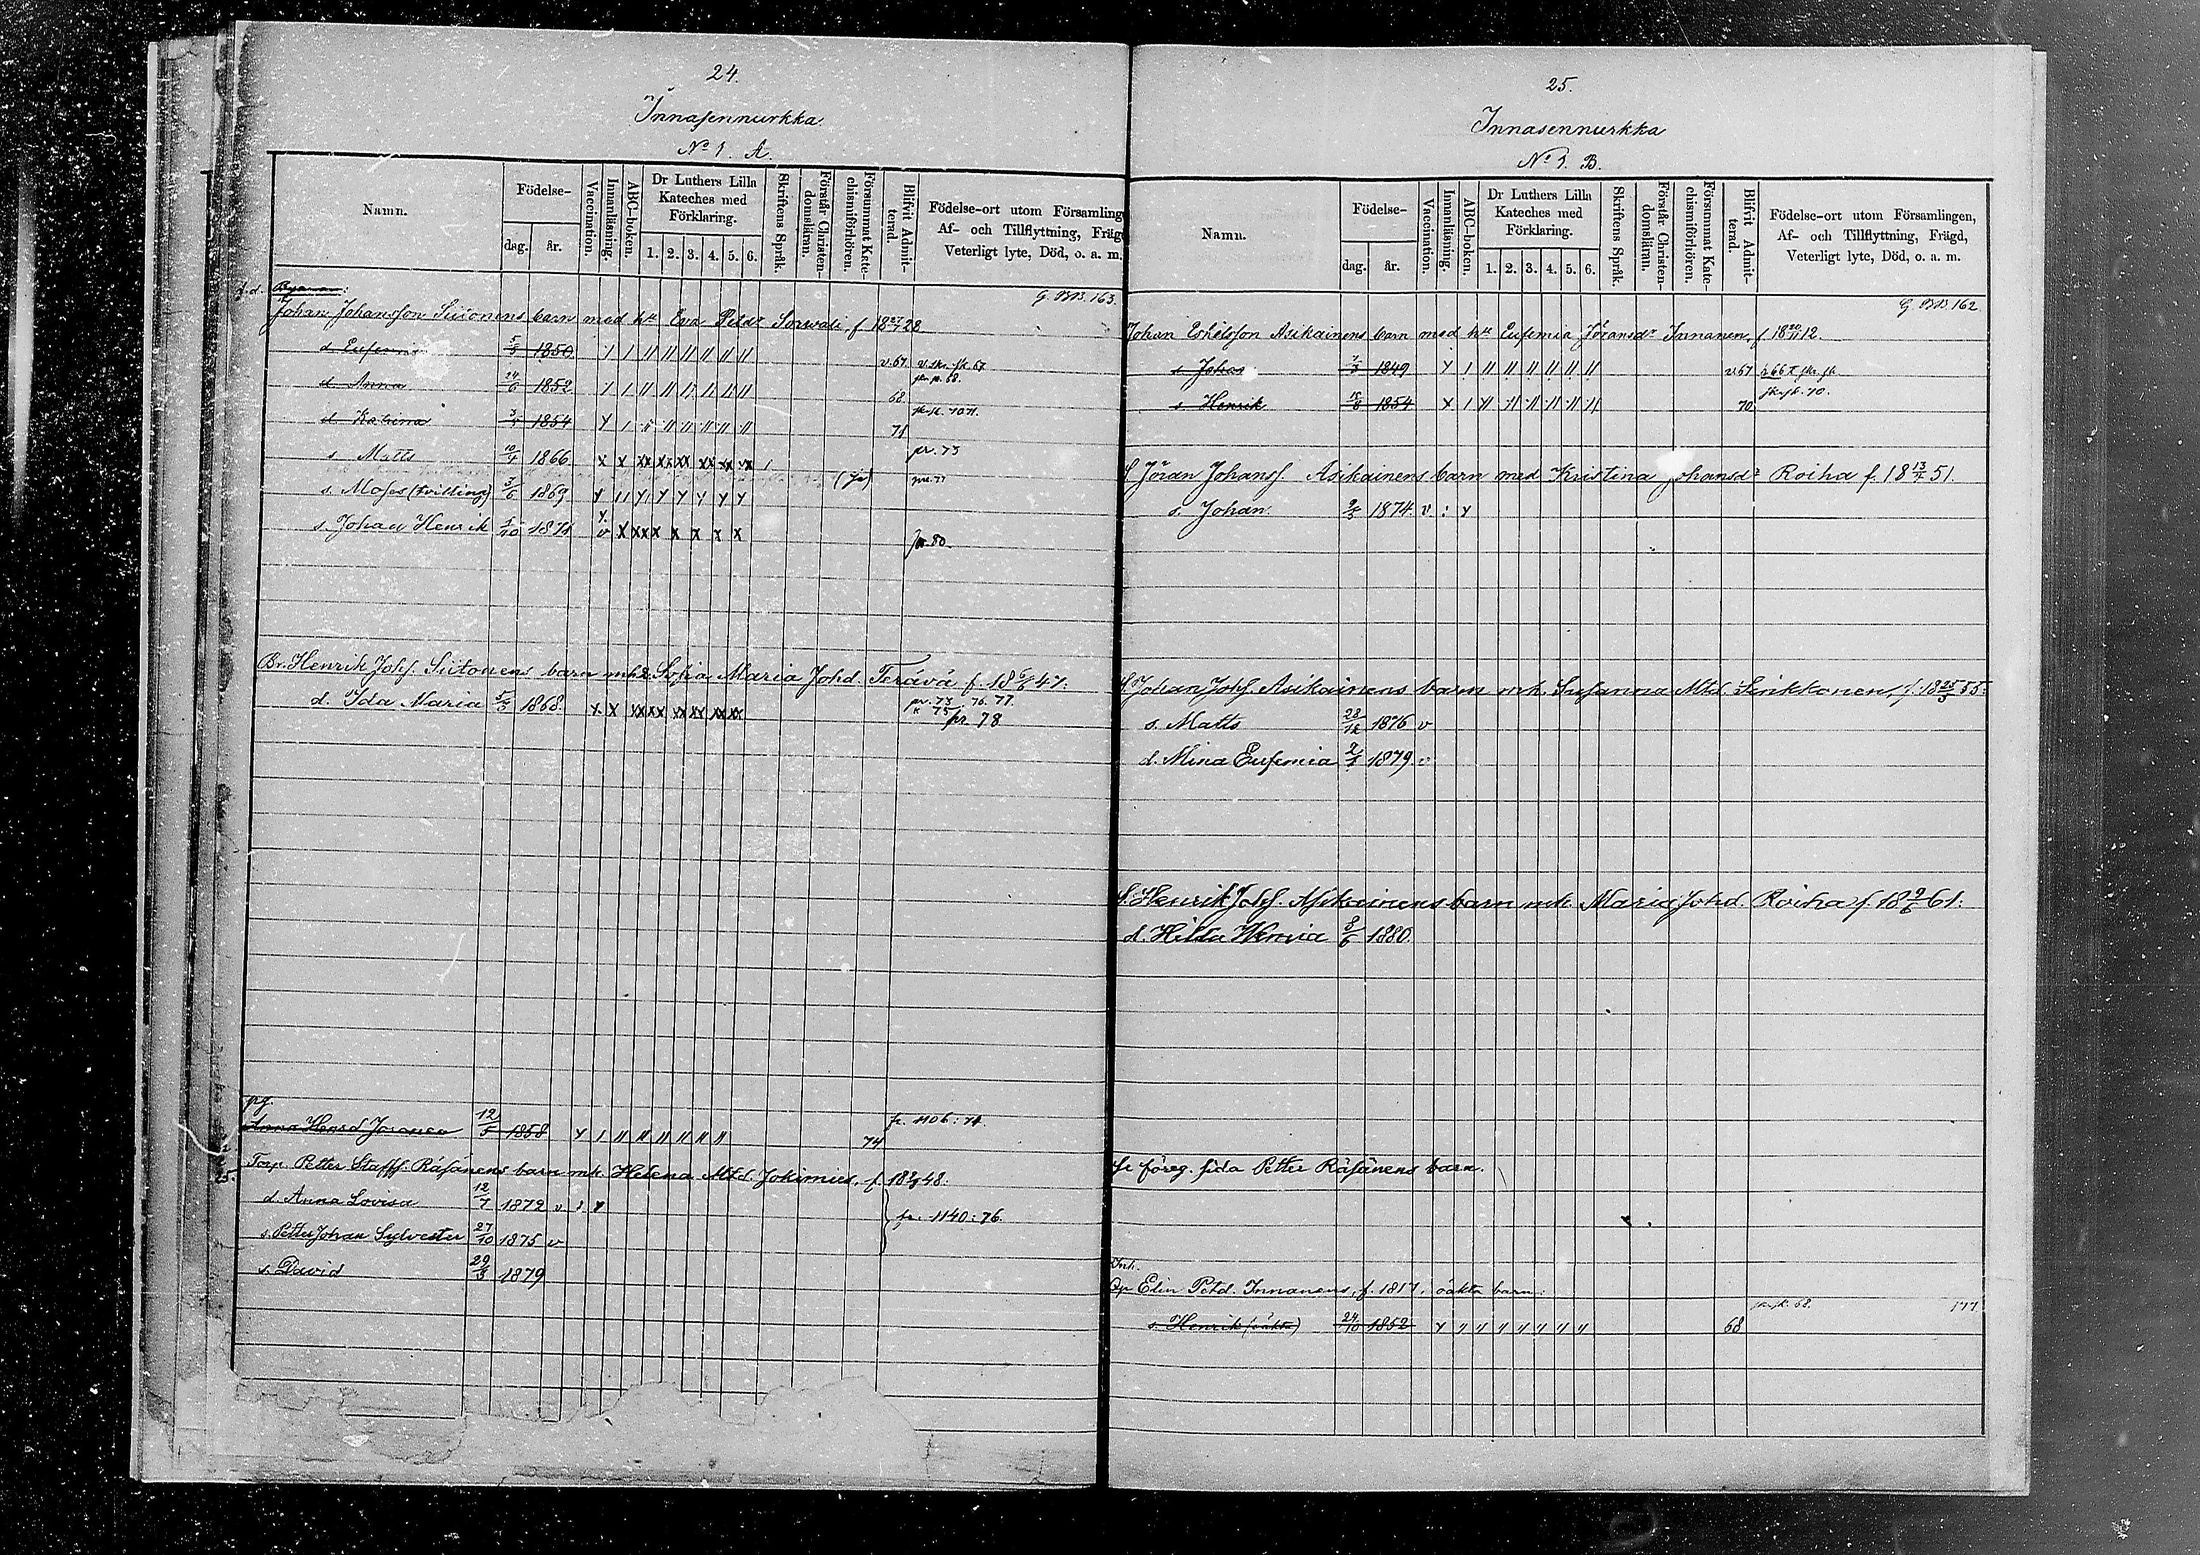 24.
Innasennurkka.
No 1. A.
Namn.
Födelse-
dag. år.
Vaccination.
Innanläsning.
ABC-boken.
Dr Luthers Lilla Kateches med Förklaring.
1. 2. 3. 4. 5. 6.
Skriftens Språk.
Förstår Christendomsläran.
Försummat Katechismiförhören.
Blifvit Admitterad.
Födelse-ort utom Församling
Af- och Tillflyttning, Fräg
Veterligt lyte, Död, o. a. m.
G. BB. 163.
Johan Johansson barn med h. Eva Petdr Sorwali f. 18 27/7 28
d. Eufemia 5/5 1850 v. 67
d. Anna 24/6 1852 68
d. Katrina 1854 71
s. Matts 10/4 1866 pr. 73
s. Moses (tvilling) 3/6 1869
s. Johan Henrik 1/10 1871 pr. 80.
Br. Henrik Johs. Siitonens barn mh Sofia Maria Johd. Terävä f. 18 6/6 47:
d. Ida Maria 5/3 1868. pr. 73 76. 77.
75 pr 78
pg.
Anna Henrd 12/5 1858 74 fr. 1106: 74.
Torp. Petter Staffs. Räsänens barn mh. Helena Mtd. Jokimies, f. 48:
d. Anna Lovisa 12/7 1872 v
s. Petter Johan Sylvester 27/10 1875 v fr. 1140: 76.
s. David 29/3 1879
25.
Innasennurkka
No 1. B.
Namn.
Födelse-
dag. år.
Vaccination.
Innanläsning.
ABC-boken.
Dr Luthers Lilla Kateches med Förklaring.
1. 2. 3. 4. 5. 6.
Skriftens Språk.
Förstår Christendomsläran.
Försummat Katechismiförhören.
Blifvit Admitterad.
Födelse-ort utom Församlingen,
Af- och Tillflyttning, Frägd,
Veterligt lyte, Död, o. a. m.
G. BB. 162
Johan Eskelsson Asikainens barn med h. Eufemia Jöransdr Innanen, f. 18 20/11 12.
s. Johan 1849 v 67
s. Henrik 1854 70
S. Jöran Johans. Asikainens barn med Kristina Johansdr Roiha f. 18 13/2 51.
s. Johan 1874. v
S. Johan Johs. Asikainens barn mh. Susanna Mtd. Sinkkonen, f. 18 25/5 55:
s. Matts 28/12 1876 v
d. Mina Eufemia 1879 v
S. Henrik Johs. Asikainens barn mh. Maria Johd. Roiha f. 18 9/6 61:
d. Hilda 8/6 1880.
Se föreg. sida Petter Räsänens barn.
Inh.
Elin Petd. Innanens, f. 1817, oäkta barn:
s. Henrik (oäkta) 24/10 1852 68